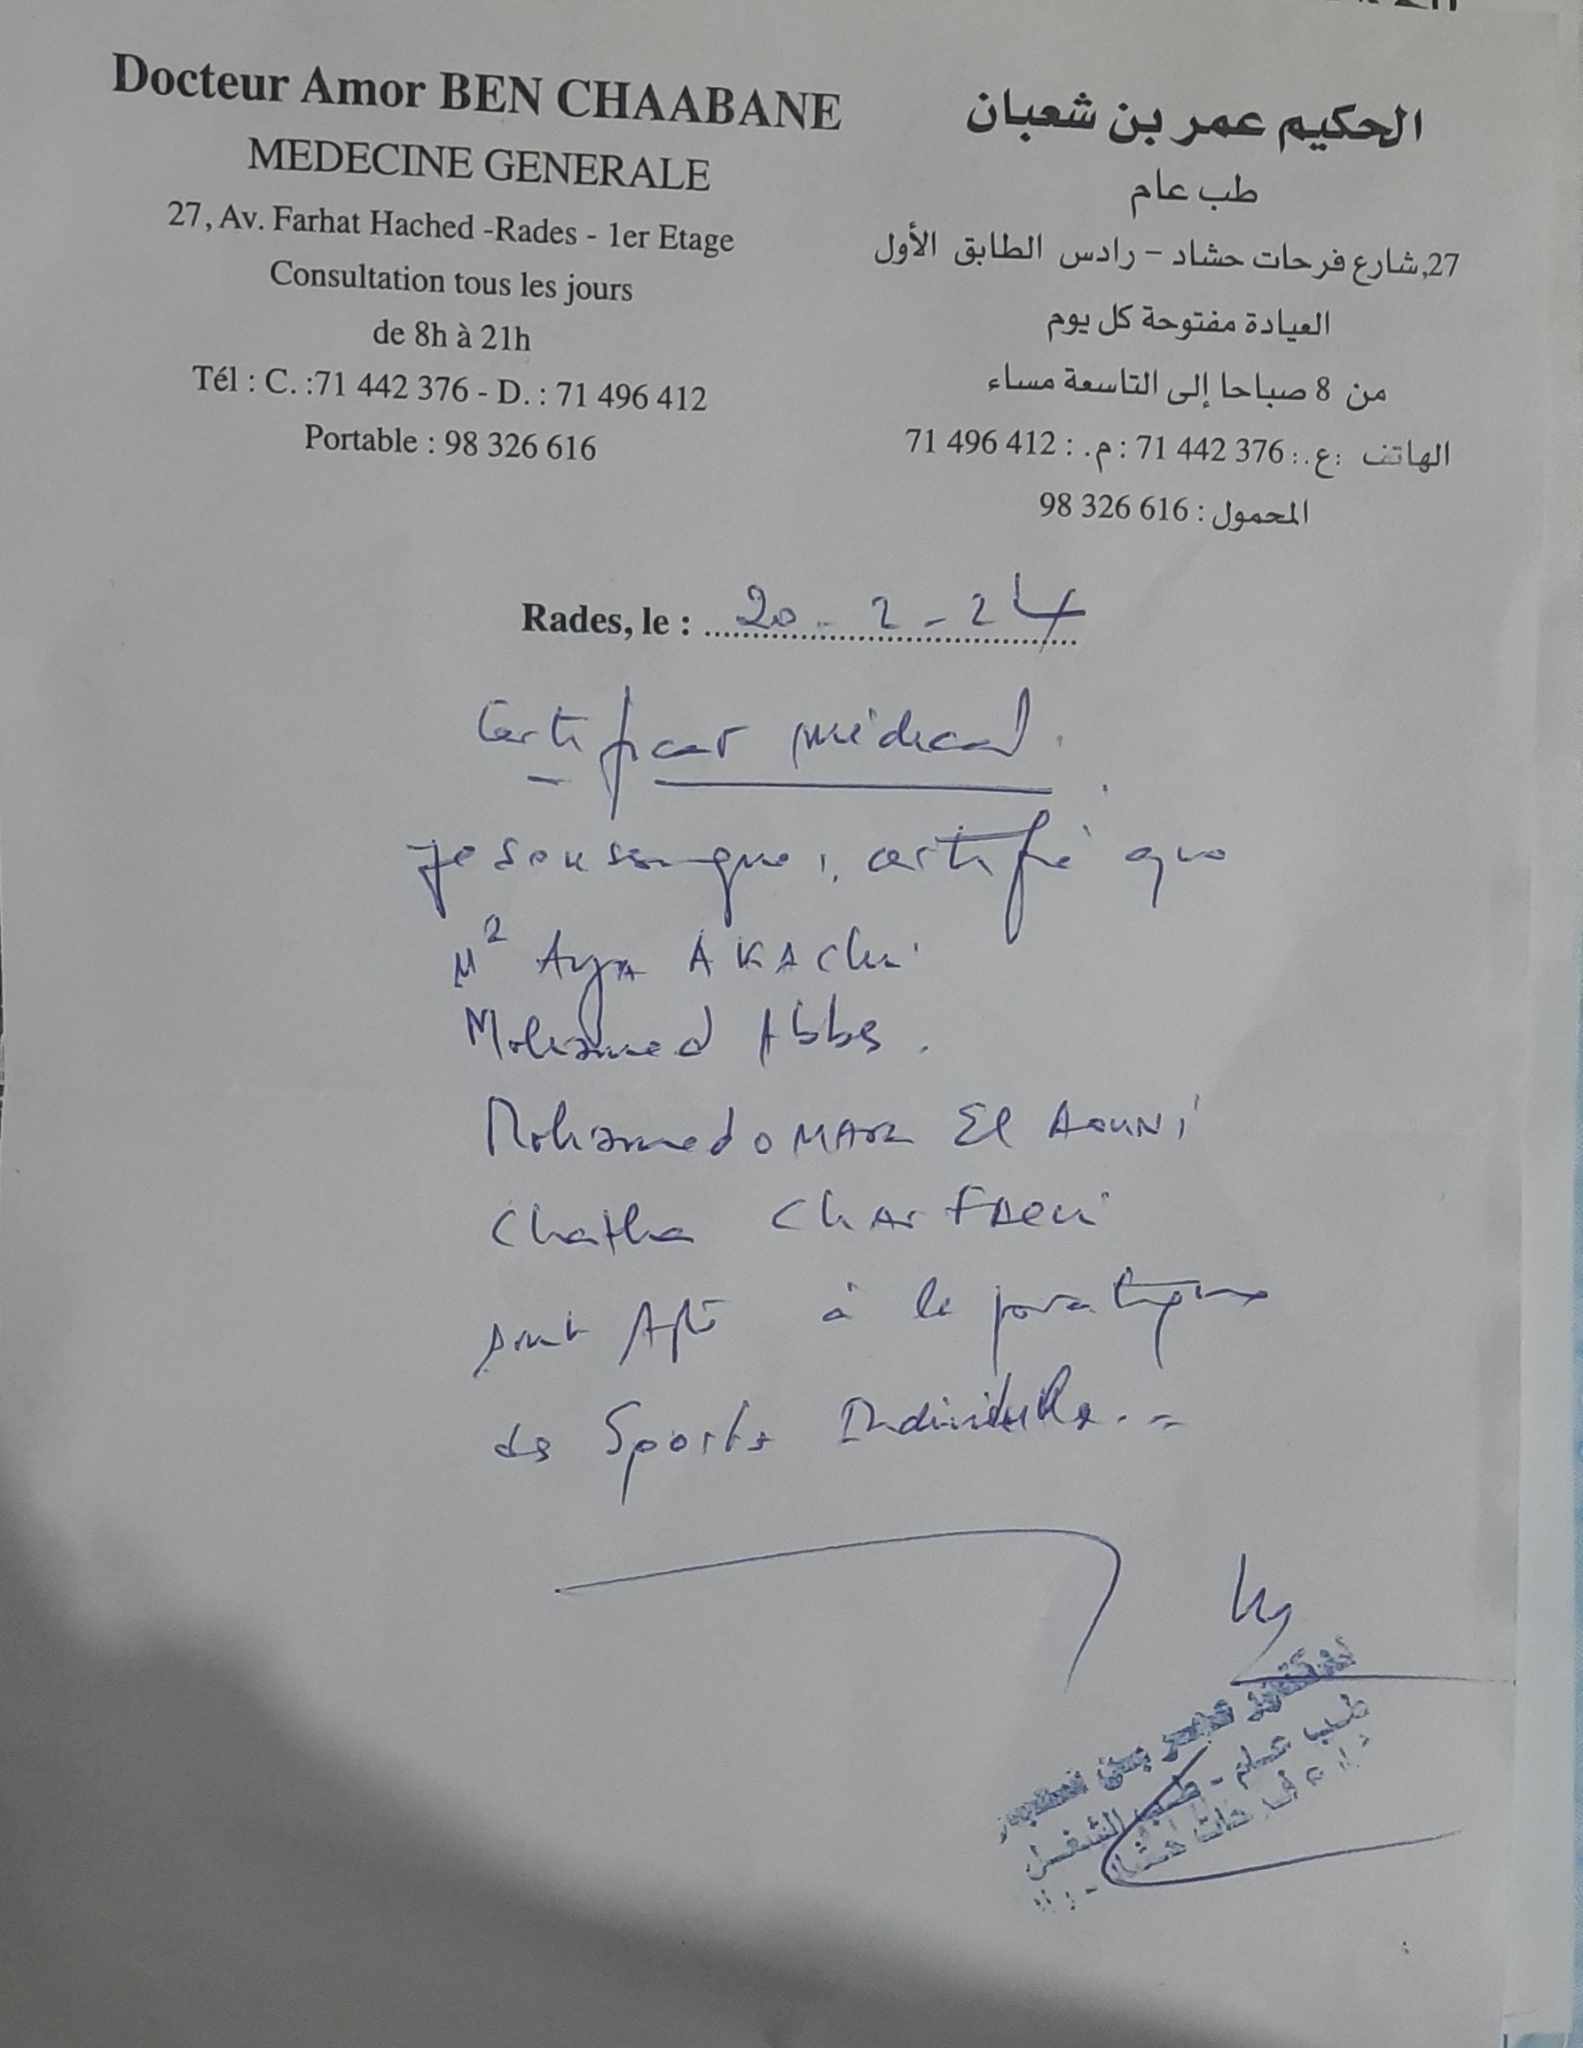 Docteur Amor BEN CHAABANE
MEDECINE GENERALE
27, Av. Farhat Hached -Rades - 1er Etage
Consultation tous les jours
de 8h à 21h
Tél : C. :71 442 376 - D. : 71 496 412
Portable : 98 326 616
الحكيم عمر بن شعبان
طب عام
27, شارع فرحات حشاد - رادس الطابق الأول
العيادة مفتوحة كل يوم
من 8 صباحا إلى التاسعة مساء
الهاتف :ع.: 376 442 71 : م. : 412 496 71
المحمول : 616 326 98
Rades, le : 20 - 2 - 24
Certificat médical.
je soussigné, certifié que
Aya AKAchi
Mohamed Abbs.
Mohamed OMAR El AOUNI
Chatha CharFaeu
sont Apte à la pratique
des Sports Individuelles.
طب عام - طب الشغل